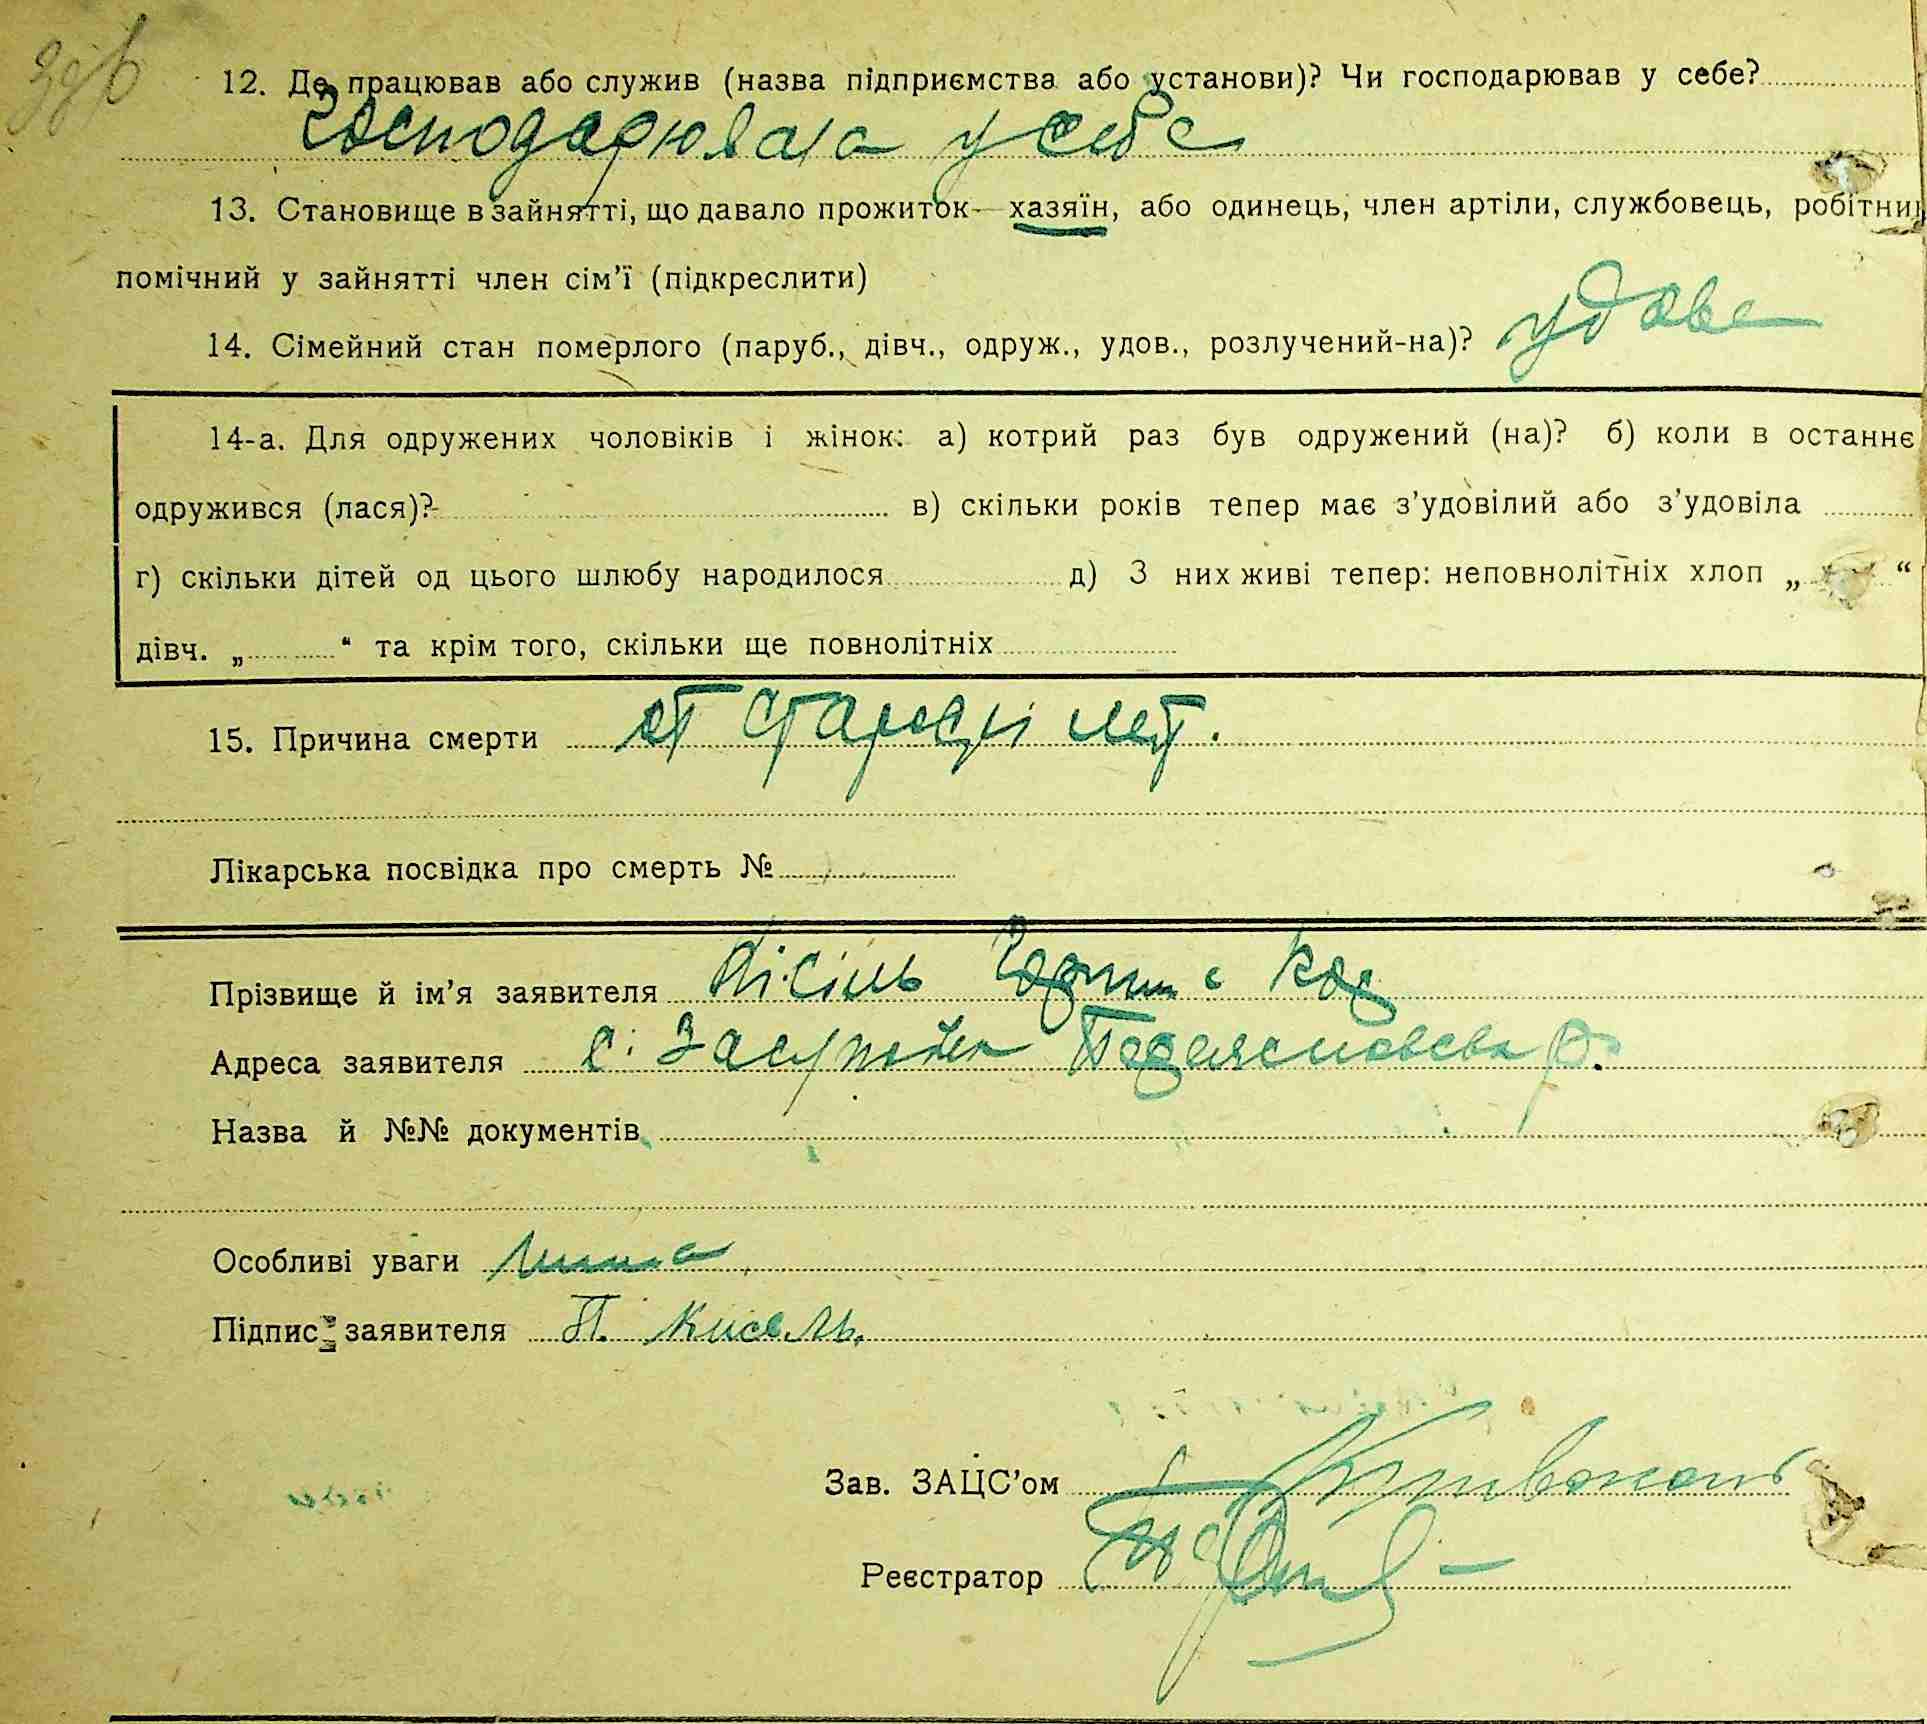 12. Де працював або служив (назва підприємства або установи)? Чи господарював у себе?
господарювала у себе
13. Становище в зайнятті, що давало прожиток—хазяїн, або одинець, член артіли, службовець, робітник
помічний у зайнятті член сім'ї (підкреслити)
14. Сімейний стан померлого (паруб., дівч., одруж., удов., розлучений-на)? удова
14-а. Для одружених чоловіків і жінок: а) котрий раз був одружений (на)? б) коли в останнє
одружився (лася)? в) скільки років тепер має з'удовілий або з'удовіла
г) скільки дітей од цього шлюбу народилося д) З них живі тепер: неповнолітніх хлоп „ “
дівч. „ “ та крім того, скільки ще повнолітніх
15. Причина смерти от старости лет.
Лікарська посвідка про смерть №
Прізвище й ім'я заявителя Кісіль
Адреса заявителя с.
Назва й №№ документів
Особливі уваги
Підпис заявителя П. Кисель.
Зав. ЗАЦС'ом
Реєстратор